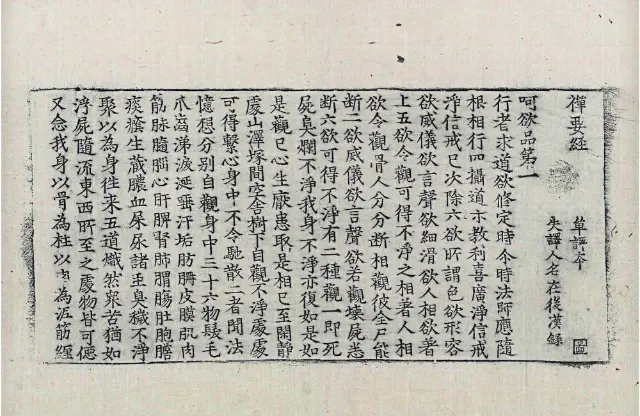 禪要經
失譯人名在後漢錄
呵欲品第一
行者求道欲修定時令時法師應隨
根相行四攝道亦教利喜廣淨信戒
淨信戒已次除六欲所謂色欲形容
欲威儀欲言聲欲細滑欲人相欲著
上五欲令觀可得不淨之相著人相
欲令觀骨人分分斷相觀彼全尸能
断二欲威儀欲言聲欲若觀壊屍悉
断六欲可得不淨有二種觀一即死
屍臭爛不淨我身不淨亦復如是如
是觀已心生厭患取是相已至閑靜
處山澤塚間空舍樹下自觀不淨處處
可得繫心身中不令馳散二者聞法
憶想分別自觀身中三十六物髮毛
爪齒涕淚涎唾汗垢肪𦙽皮膜肌肉
筋脉髓腦心肝脾腎肺胃腸肚胞膽
痰癊生藏膿血屎尿諸虫臭穢不淨
聚以為身往来五道熾然衆苦猶如
浮屍隨流東西所至之處物皆可惡
又念我身以骨為柱以肉為泥筋纏